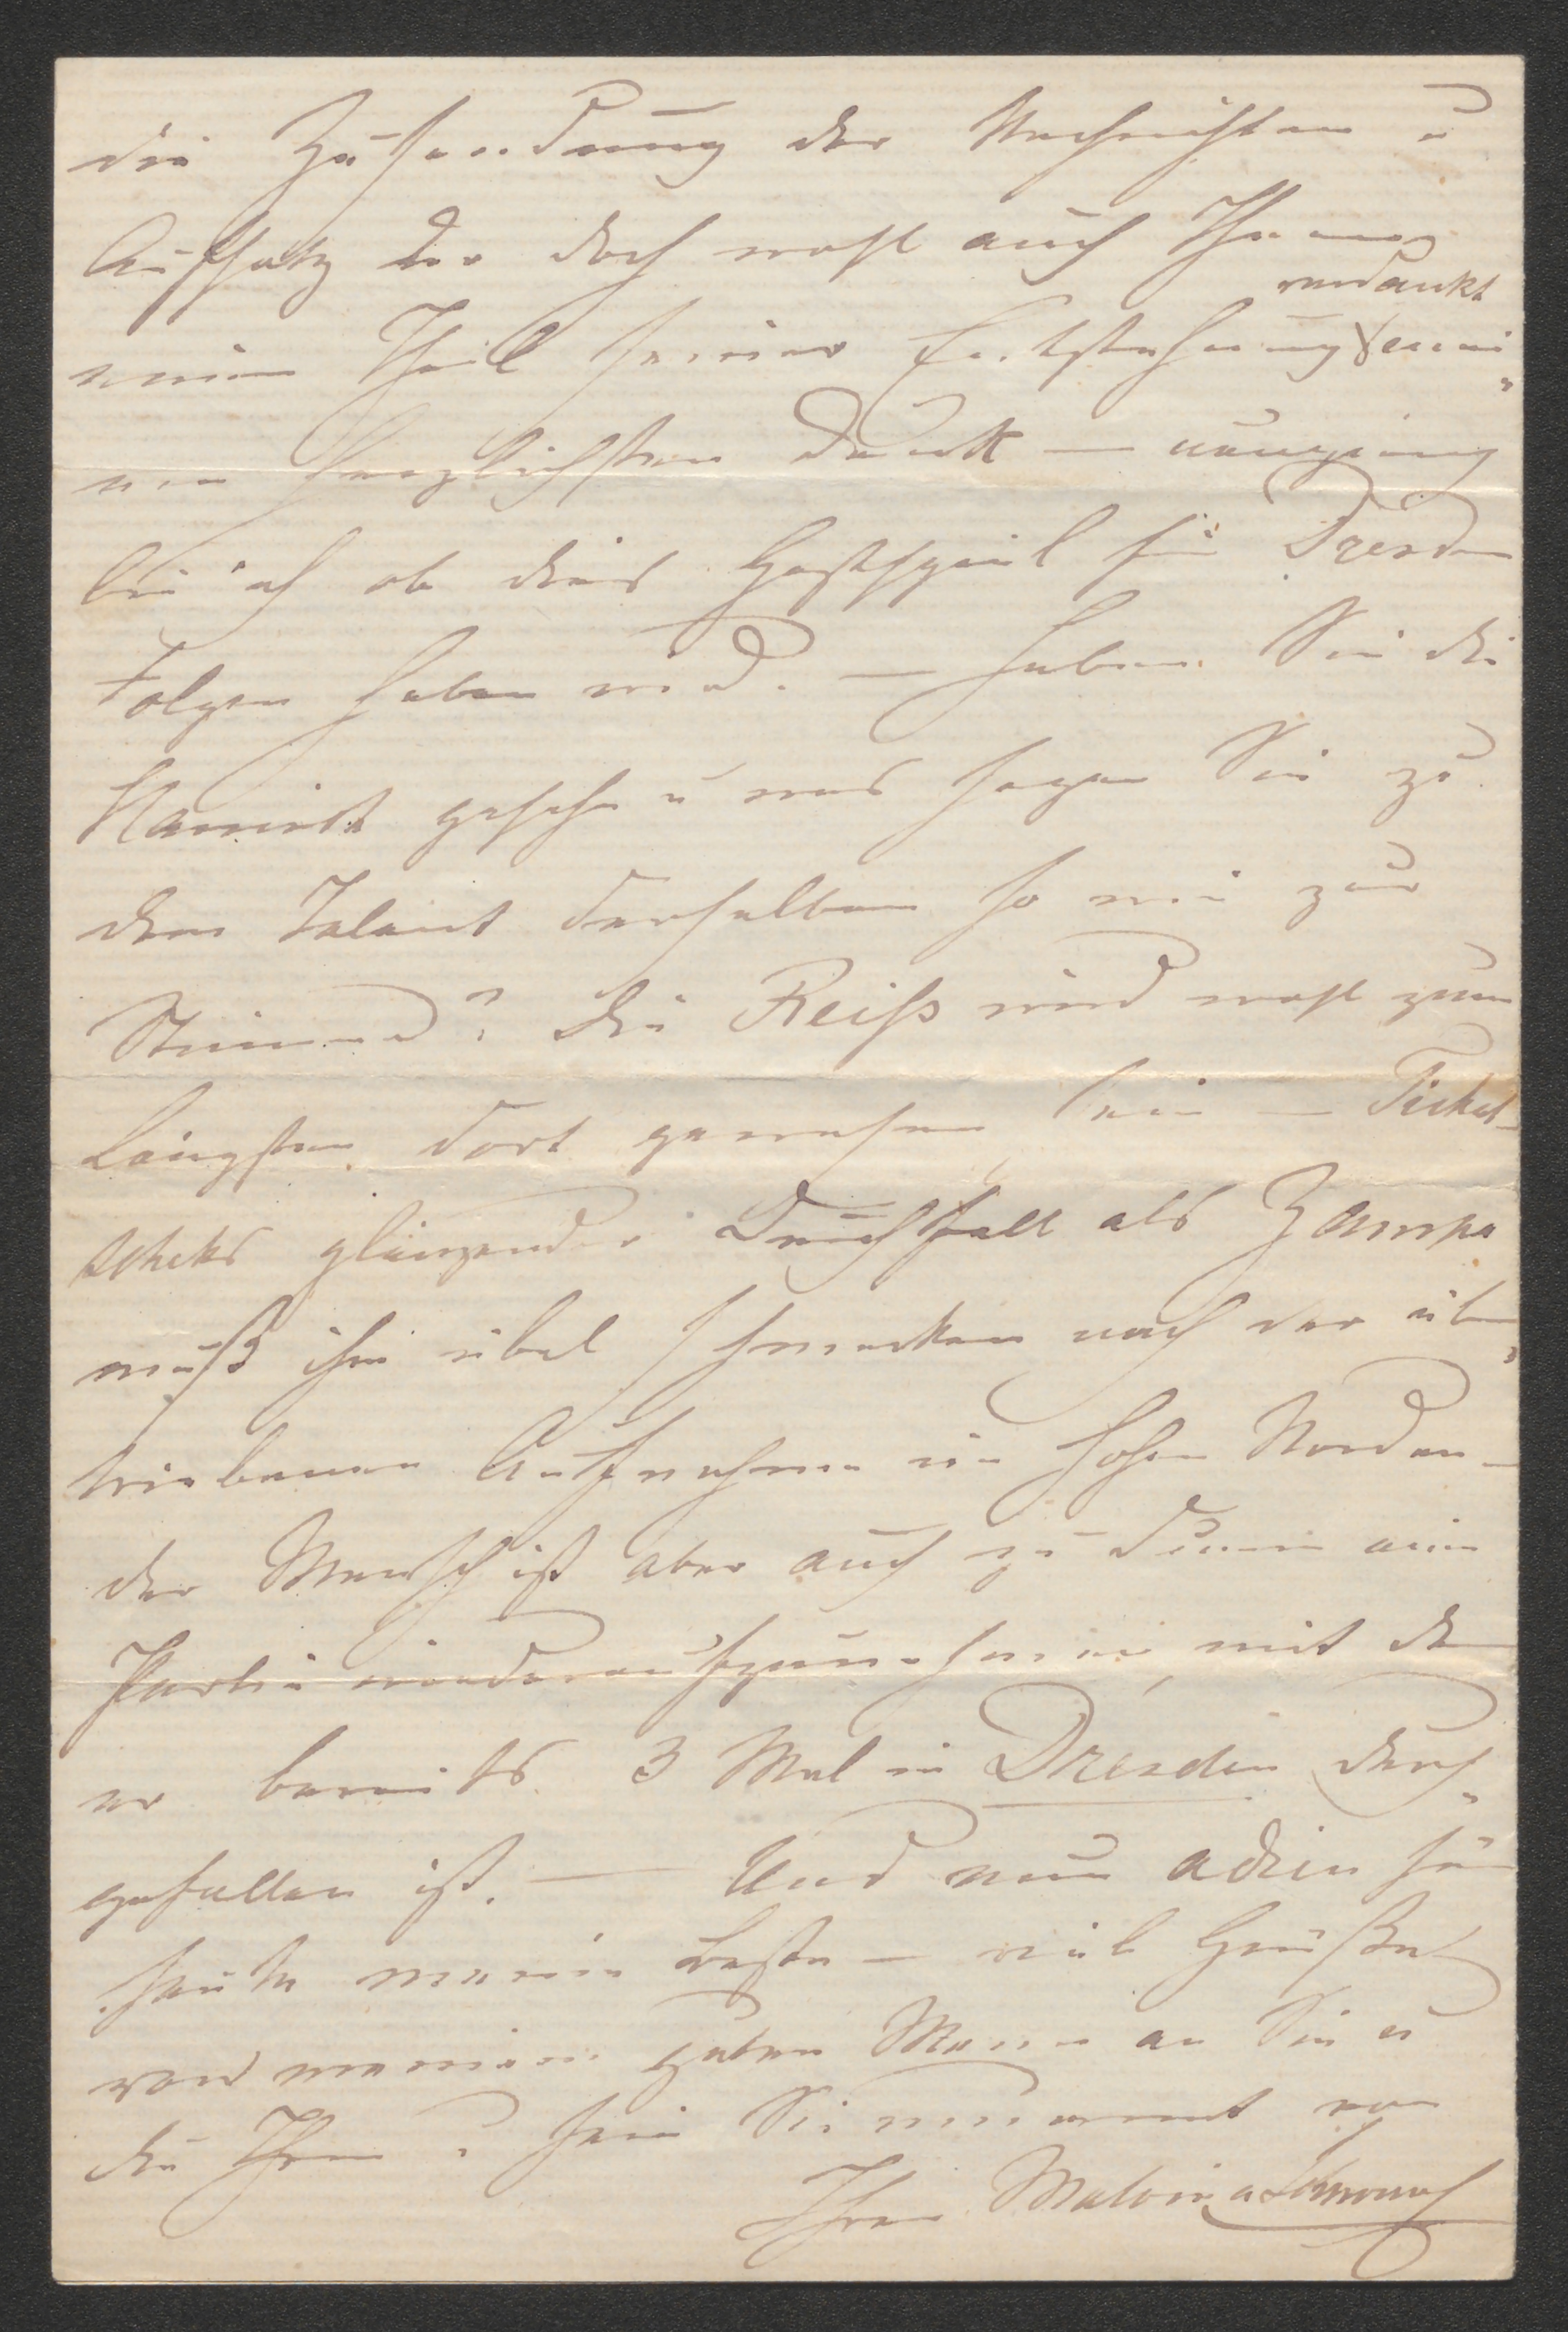 die Zusendung der Nachrichten u
Aufsatz der doch wohl auch Ihnen
verdankt
einen Theil seiner Entstehung mei„
nen herzlichsten Dank — neugierig
bin ich ob dies Gastspiel für Dresden
Folgen haben wird. — Haben Sie die
gesehn u was sagen Sie zu
dem Talent derselben so wie zur
Stimme? Die Reiß wird wohl zum
Längsten dort gewesen sein — Tichat-
scheks glänzender Durchfall als Zampa
muß ihm übel schmecken nach der über„
triebenen Aufnahme im hohen Norden —
der Mensch ist aber auch zu dumm eine
Parthie wiederaufzunehmen, mit der
er bereits 3 Mal in Dresden durch„
gefallen ist. — Und nun adieu für
heute meine Beste — viele Grüße
von meinem guten Mann an Sie u
die Ihren u sein Sie umarmt von
Ihrer Malvina Schnorr